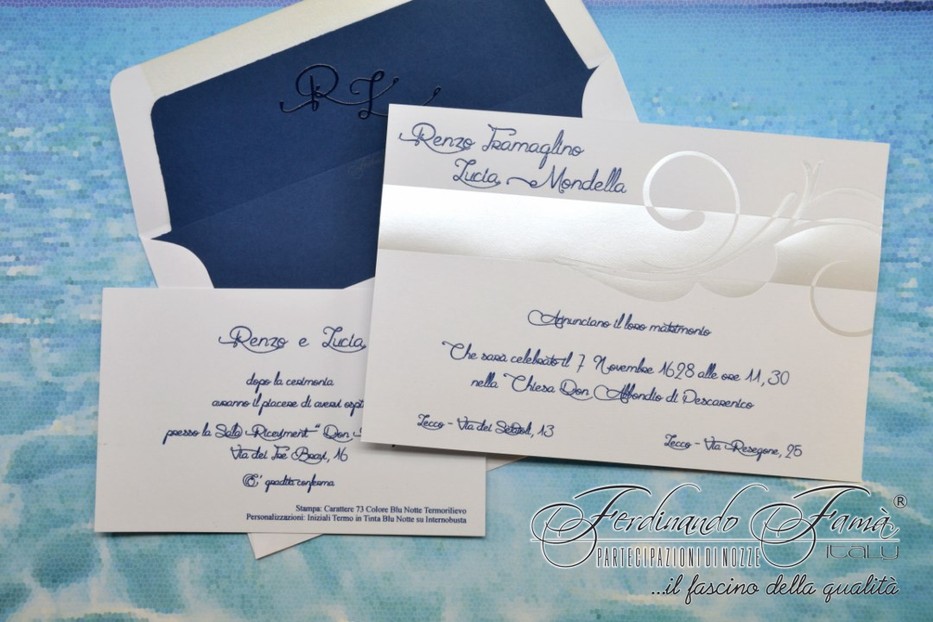 R L
Renzo Tramaglino
Lucia Mondella
Annunciano il loro matrimonio
Che sarà celebrato il 7 Novembre 1628 alle ore 11,30
nella Chiesa Don Abbondio di Pescarenico
Lecco - Via dei
13
Lecco - Via Resegone, 25
Renzo e Lucia
dopo la cerimonia
avranno il piacere di avervi ospi
presso la Sala Ricevimenti " Don
Via dei Tre Bravi, 16
E' gradita conferma
Stampa: Carattere 73 Colore Blu Notte Termorilievo
Personalizzazioni: Iniziali Termo in Tinta Blu Notte su Internobusta
Ferdinando Famà ®
PARTECIPAZIONI DI NOZZE ITALY
...il fascino della qualità